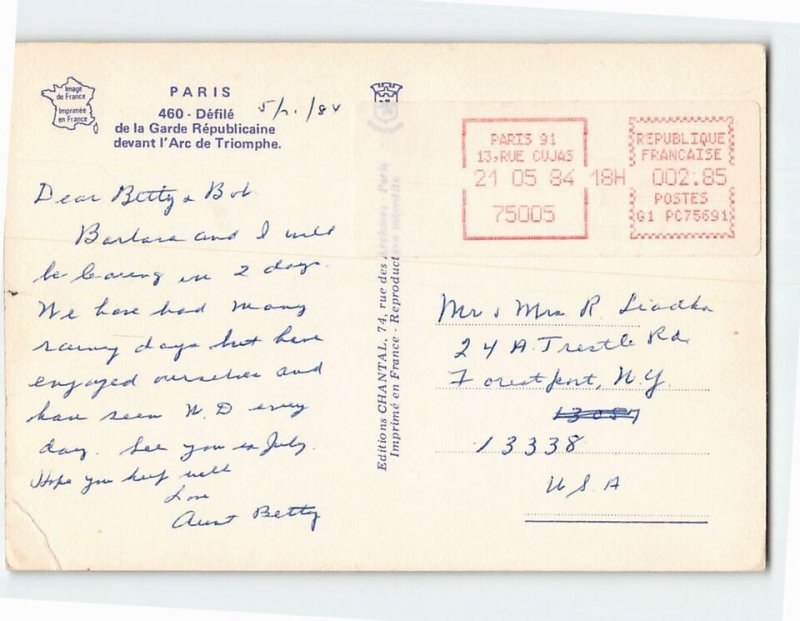 Image
de France
Imprimée
en France
PARIS
460 - Défilé
de la Garde Républicaine
devant l'Arc de Triomphe.
Dear Betty & Bob
Barbara and I will
be leaving in 2 days.
We have had many
rainy days but have
enjoyed ourselves and
have seen N.D every
day. See you in July.
Hope you keep well
Love
Aunt Betty
Editions CHANTAL, 74, rue des Archives - Paris
Imprimé en France - Reproduction interdite
PARIS 91
13,RUE CUJAS
21 05 84 18H
75005
REPUBLIQUE
FRANCAISE
002.85
POSTES
G1 PC75691
Mr & Mrs R.
24 A Trestle Rd.
Forestport, N.Y.
13338
U.S.A